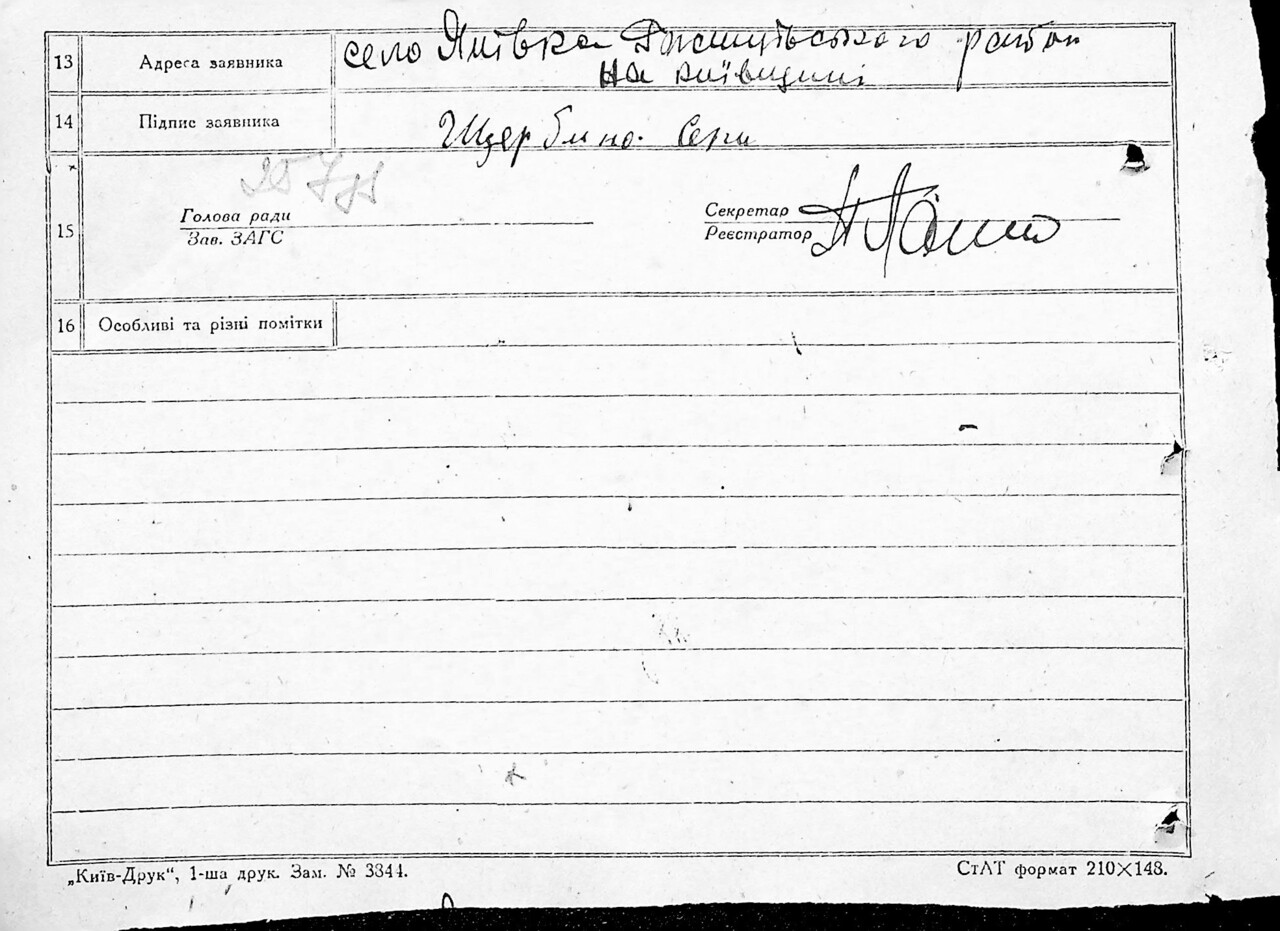 13 Адреса заявника село Янівка району
на київщині
14 Підпис заявника Щербина
15 Голова ради
Зав. ЗАГС
Секретар
Реєстратор
16 Особливі та різні помітки
„Київ-Друк“, 1-ша друк. Зам. № 3844.
СтАТ формат 210×148.